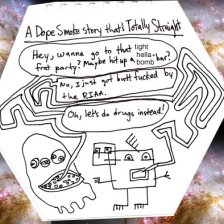 A Dope Smoke story that's Totally Straight
Hey, wanna go to that tight
frat party? Maybe hit up a hella bomb bar?
No, I just got butt fucked by
the RIAA.
Oh, let's do drugs instead!